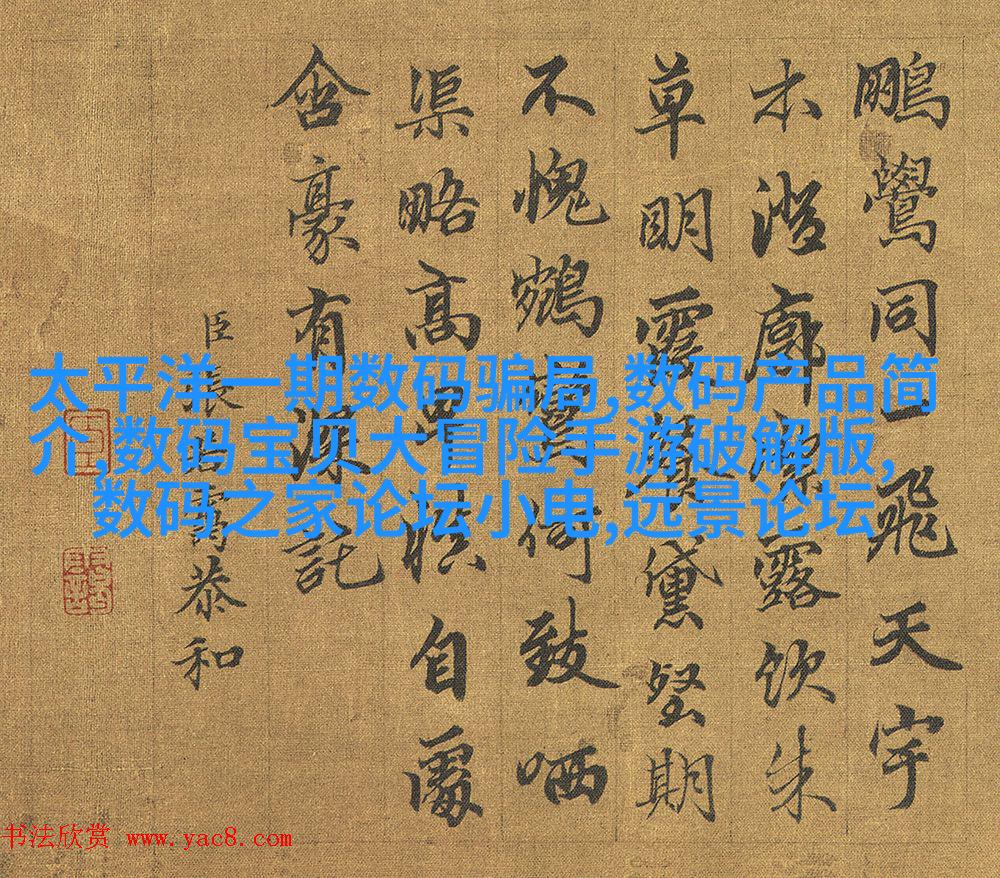 鵬鷽同一飛天宇
木澄廓露飲朱
草明霞黛堅期
不愧鵷何致哂
渠略高自屬
含豪有深託
臣張恭和
太平洋一期数码骗局,数码产品简
介,数码宝贝大冒险手游破解版,
数码之家论坛小电,远景论坛
书法欣赏 www.yac8.com